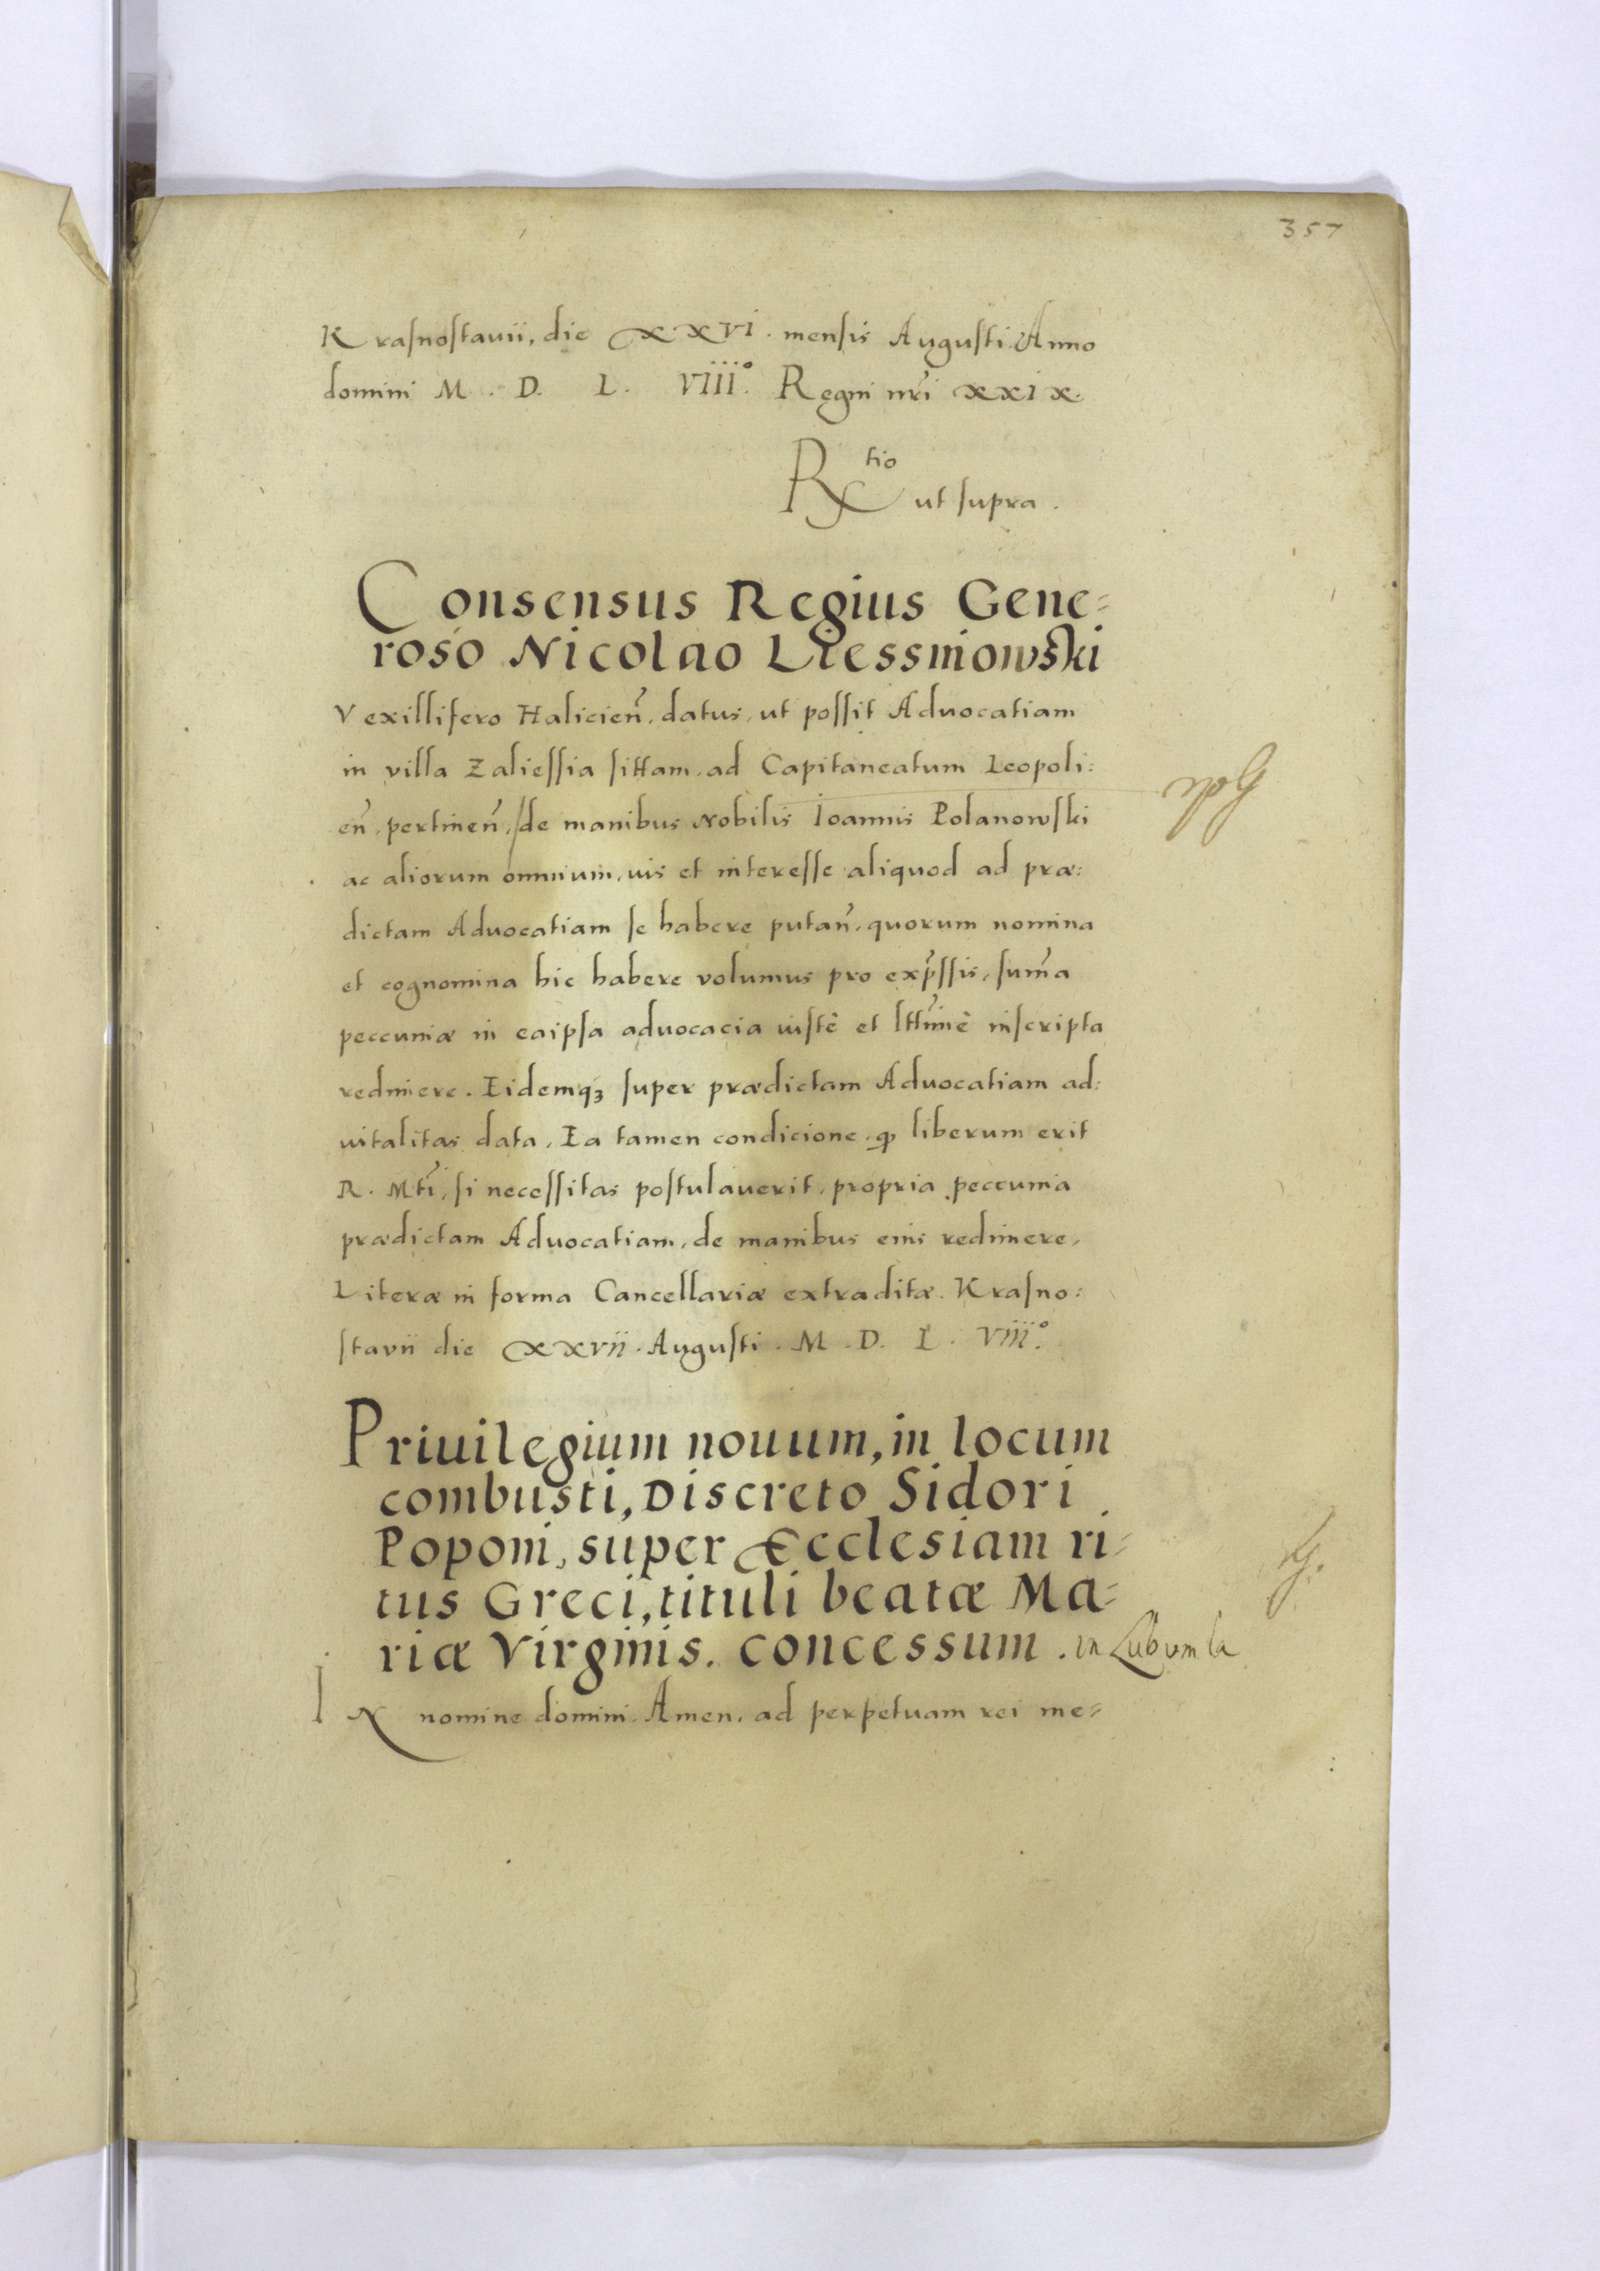 357
Krasnostavii, die XXVI. mensis Augusti Anno
domini M. D. L. VIII°. Regni nr̃i XXIX.
R tio ut supra.
Consensus Regius Gene-
roso Nicolao Liessniowski
Vexillifero Halicien̄, datus, ut possit Advocatiam
in villa Zaliessia sittam, ad Capitaneatum Leopoli:
en̄, pertinen̄, de manibus Nobilis Ioannis Polanowski
ac aliorum omnium, ius et interesse aliquod ad præ:
dictam Advocatiam se habere putan̄, quorum nomina
et cognomina hic habere volumus pro exp̄ssis, sum̄a
peccuniæ in eaipsa advocacia iustè et ltt̄imè inscripta
redimere. Eidemqʒ super prædictam Advocatiam ad:
vitalitas data, Ea tamen condicione, ꝙ liberum erit
R. Mtĩ, si necessitas postulaverit, propria peccunia
prædictam Advocatiam, de manibus eius redimere,
Literæ in forma Cancellariæ extraditæ. Krasno:
stavii die XXVII. Augusti. M. D. L. VIII°.
Priuilegium nouum, in locum
combusti, Discreto Sidori
Poponi, super Ecclesiam ri-
tus Greci, tituli beatæ Ma-
riæ Virginis. concessum. in Lubomla
IN nomine domini Amen. ad perpetuam rei me-